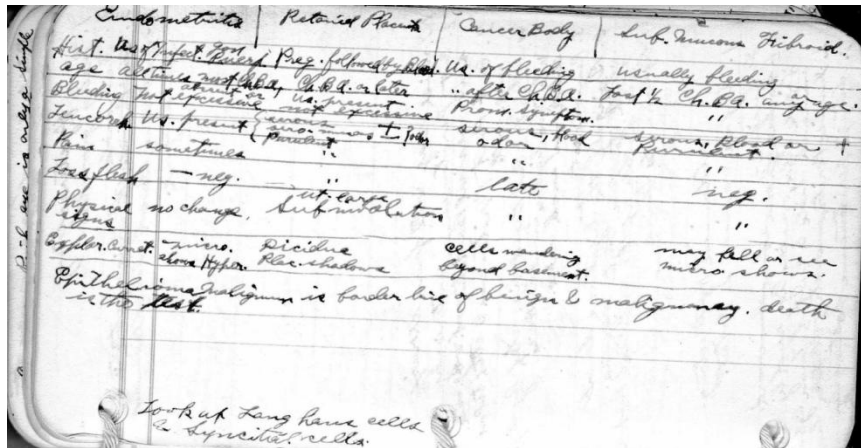 Endometritis Retained Placenta Cancer Body Sub. Mucous Fibroid.
Hist. Us. of Infect. Post Puerp. Preg. followed by Bleed. Us. of bleeding usually bleeding
age all times most Ch.B.A. Ch.B.A. or later " after Ch.B.A. Last ½ Ch.B.A. any age.
Bleeding not excessive Us. present most excessive Prom. symptom. "
Leucorrh. Us. present serous sero. muco. purulent ± odor serous, blood odor serous, blood or + Purulent.
Pain sometimes " "
Loss flesh — neg. " late neg.
Physical signs no change. ut. large Subinvolution " "
Explor. Curret. — micro. shows Hyper. Decidua Plac. shadows cells wandering beyond basement. may fell or see micro shows.
Epithelioma malignum is border line of benign & malignancy. death
is the test.
Look up Langhans cells
& Syncitial cells.